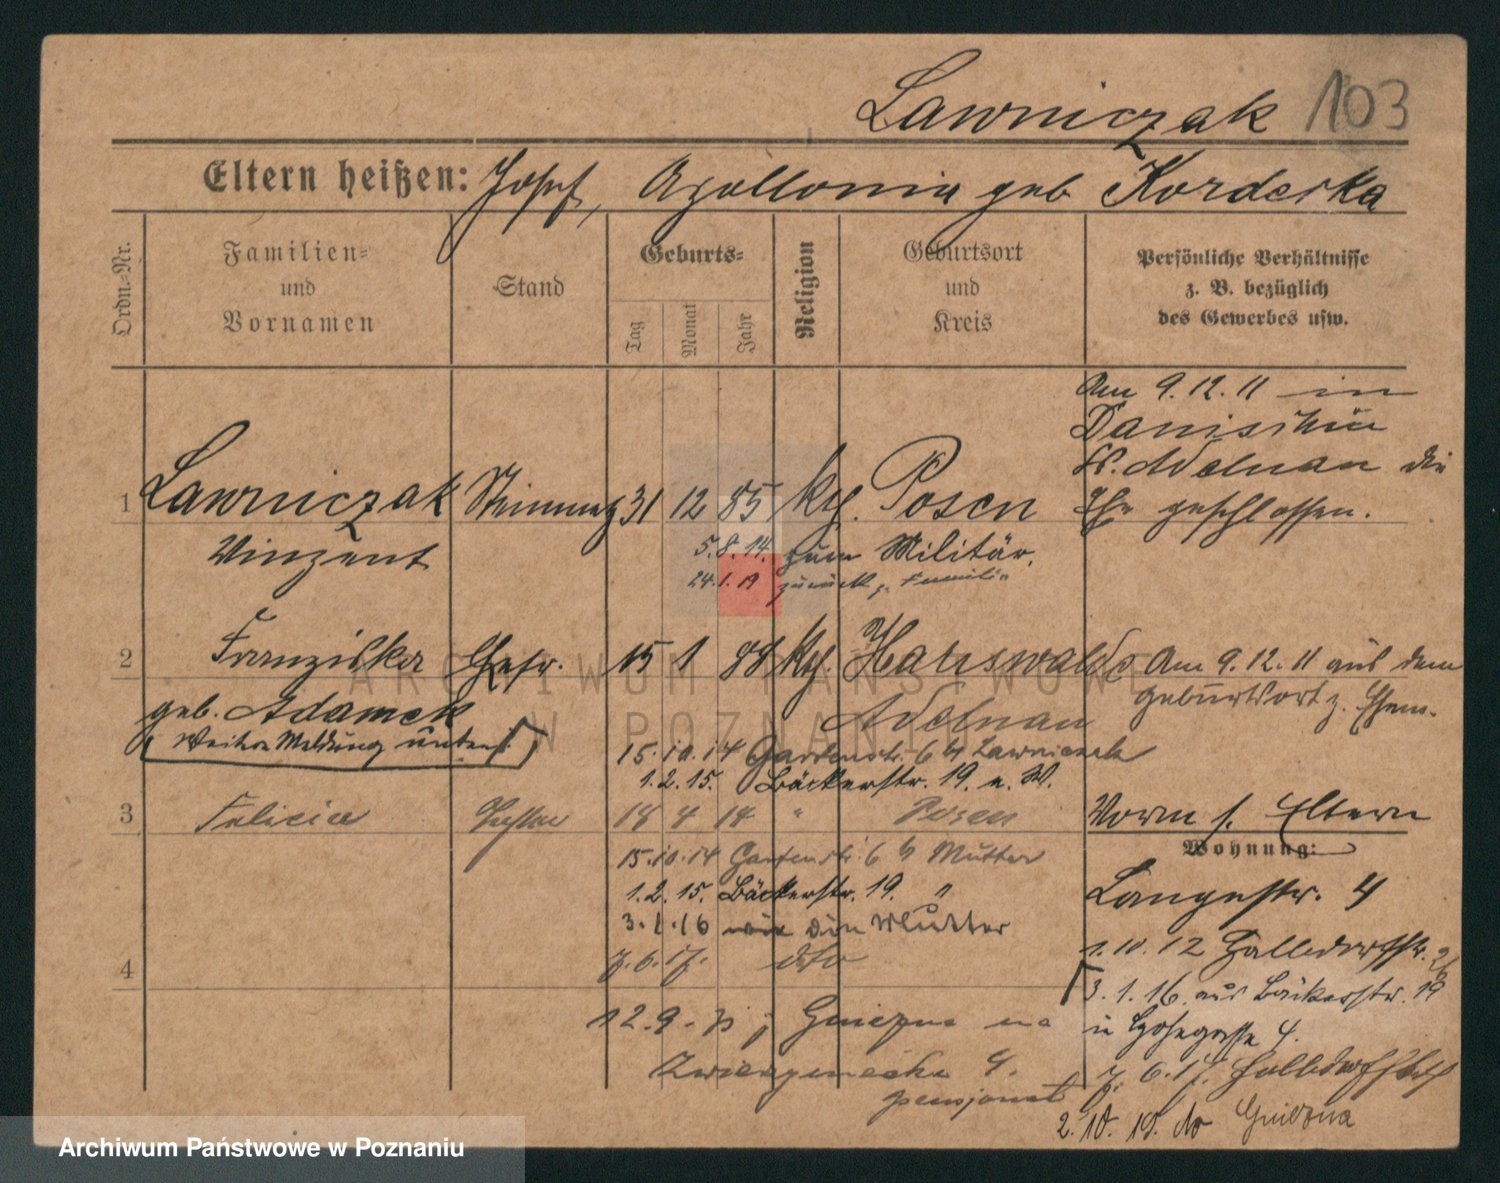 Lawniczak 103
Eltern heißen: Josef, Apollonia geb Korderka
Ordn.-Nr.
Familien-
und
Vornamen
Stand
Geburts-
Tag
Monat
Jahr
Religion
Geburtsort
und
Kreis
Persönliche Verhältnisse
z. B. bezüglich
des Gewerbes usw.
Am 9.12.11 in
Danischin
Kr. Adelnau die
Ehe geschlossen.
1 Lawniczak 31 12 85 kth. Posen
Vinzent
5.8.14. zum Militär.
24.1.19 zurück z. Familie
2 Franziska Ehefr. 15 1 88 kth. Hanswalde Am 9.12.11 aus dem
Geburtsort z. Ehem.
geb. Adamek Adelnau
Weitere Meldung unten!
15.10.14 Gartenstr. 6 b/ Lawniczak
1.2.15. Bäckerstr. 19. e. W.
3 Felicia Tochter 18 4 14 " Posen Vorm s. Eltern
Wohnung:
15.10.14 Gartenstr. 6 b/ Mutter
1.2.15. Bäckerstr. 19. "
3.1.16 wie die Mutter
7.6.17. dto
4
Langestr. 4
1.10.12 Halbdorfstr. 26
3.1.16. aus Bäckerstr. 19
in Gosegasse 4.
7.6.17. Halbdorfstr.
12.9. Gniezno na
4.
pensjonat
2.10.19. do Gniezna
ARCHIWUM PAŃSTWOWE
W POZNANIU
Archiwum Państwowe w Poznaniu